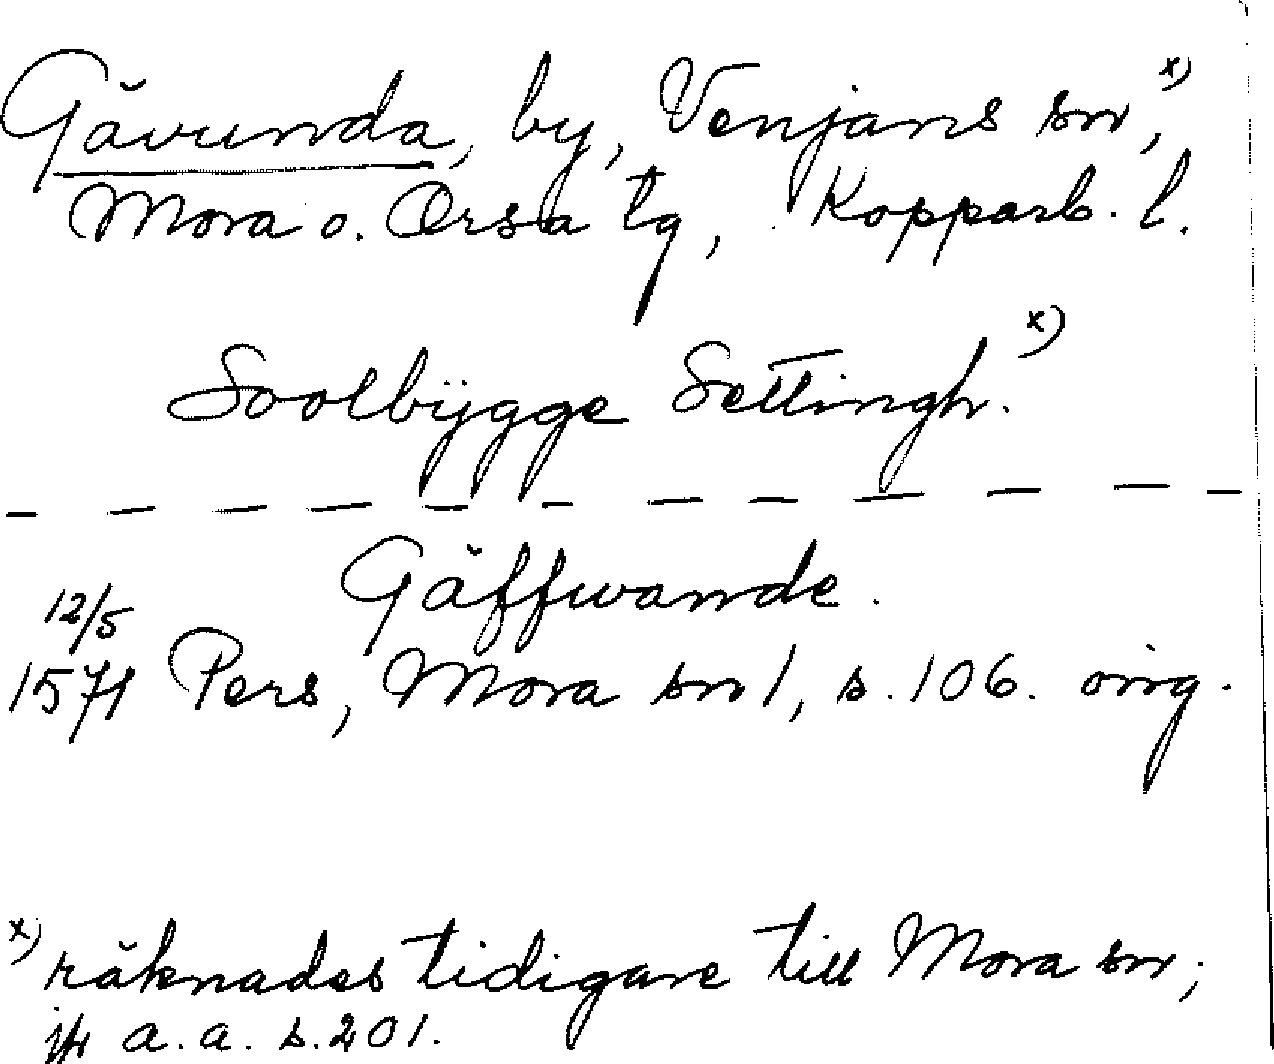 Gävunda, by, Venjans sn, x)
Mora o. Orsa tg, Kopparb. l.
Soolbÿgge Settingh. x)
Gäffwande.
12/5
1571 Pers, Mora sn 1, s. 106. orig.
x) räknades tidigare till Mora sn;
jfr a. a. s. 201.